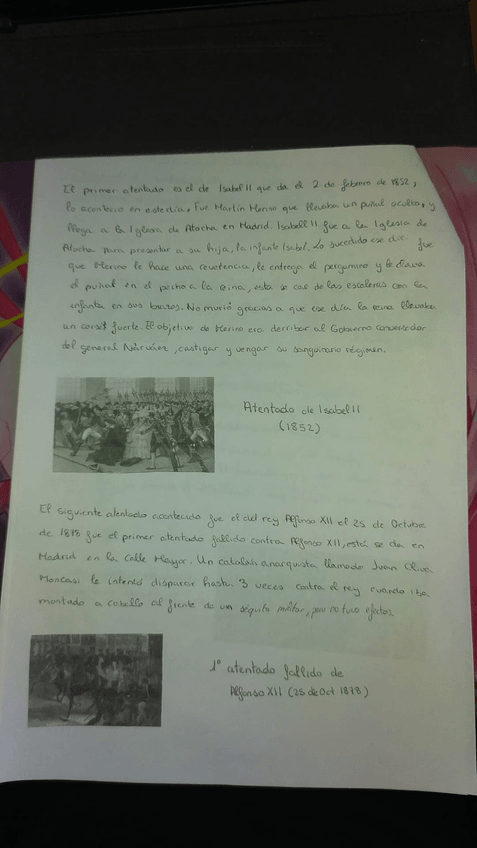 El primer atentado es el de Isabel II que da el 2 de febrero de 1852,
lo acontecio en este día. Fue Martín Merino que llevaba un puñal oculto, y
llega a la Iglesia de Atocha en Madrid. Isabel II fue a la Iglesia de
Atocha para presentar a su hija, la infante Isabel. Lo sucedido ese día fue
que Merino le hace una reverencia, le entrega el pergamino y le clava
el puñal en el pecho a la reina, esta se cae de las escaleras con la
infanta en sus brazos. No murió gracias a que ese día la reina llevaba
un corsé fuerte. El objetivo de Merino era derribar al Gobierno conservador
del general Nárváez, castigar y vengar su sanguinario régimen.
Atentado de Isabel II
(1852)
El siguiente atentado acontecido fue el del rey Alfonso XII el 25 de Octubre
de 1878 fue el primer atentado fallido contra Alfonso XII, esté se da en
Madrid en la Calle Mayor. Un catalán anarquista llamado Juan Oliva
Moncasi le intentó disparar hasta 3 veces contra el rey cuando iba
montado a caballo al frente de un séquito militar, pero no tuvo efectos.
1º atentado fallido de
Alfonso XII (25 de Oct 1878)